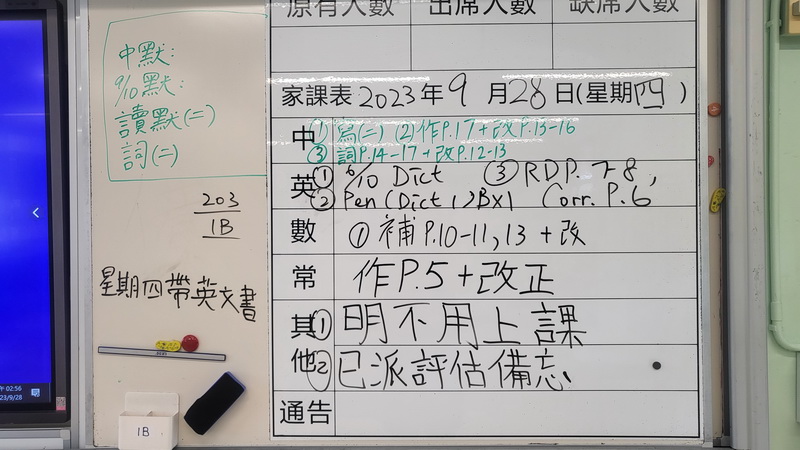 原有人數 出席人數 缺席人數
中默:
9/10默:
讀默(二)
詞(二)
203
1B
星期四帶英文書
家課表2023年9月28日(星期四)
中 ①寫(二) (2)作P.17+改P.15-16
③詞P.14-17+改P.12-13
英 ① 6/10 Dict ③ RD P. 7-8,
② Pen (Dict 1) Bx1 Corr. P.6
數 ①補P.10-11,13+改
常 作P.5+改正
其他 ①明不用上課
②已派評估備忘
通告
1B
午 02:56
23/9/28